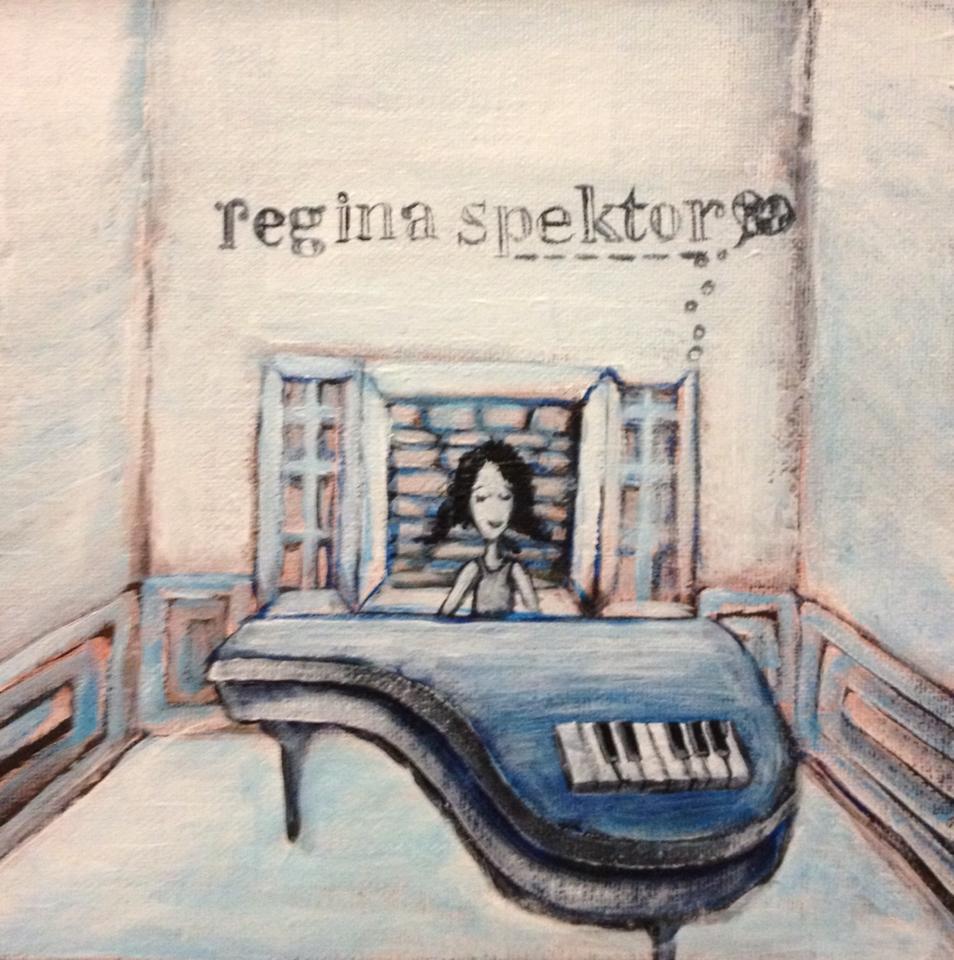 regina spektor